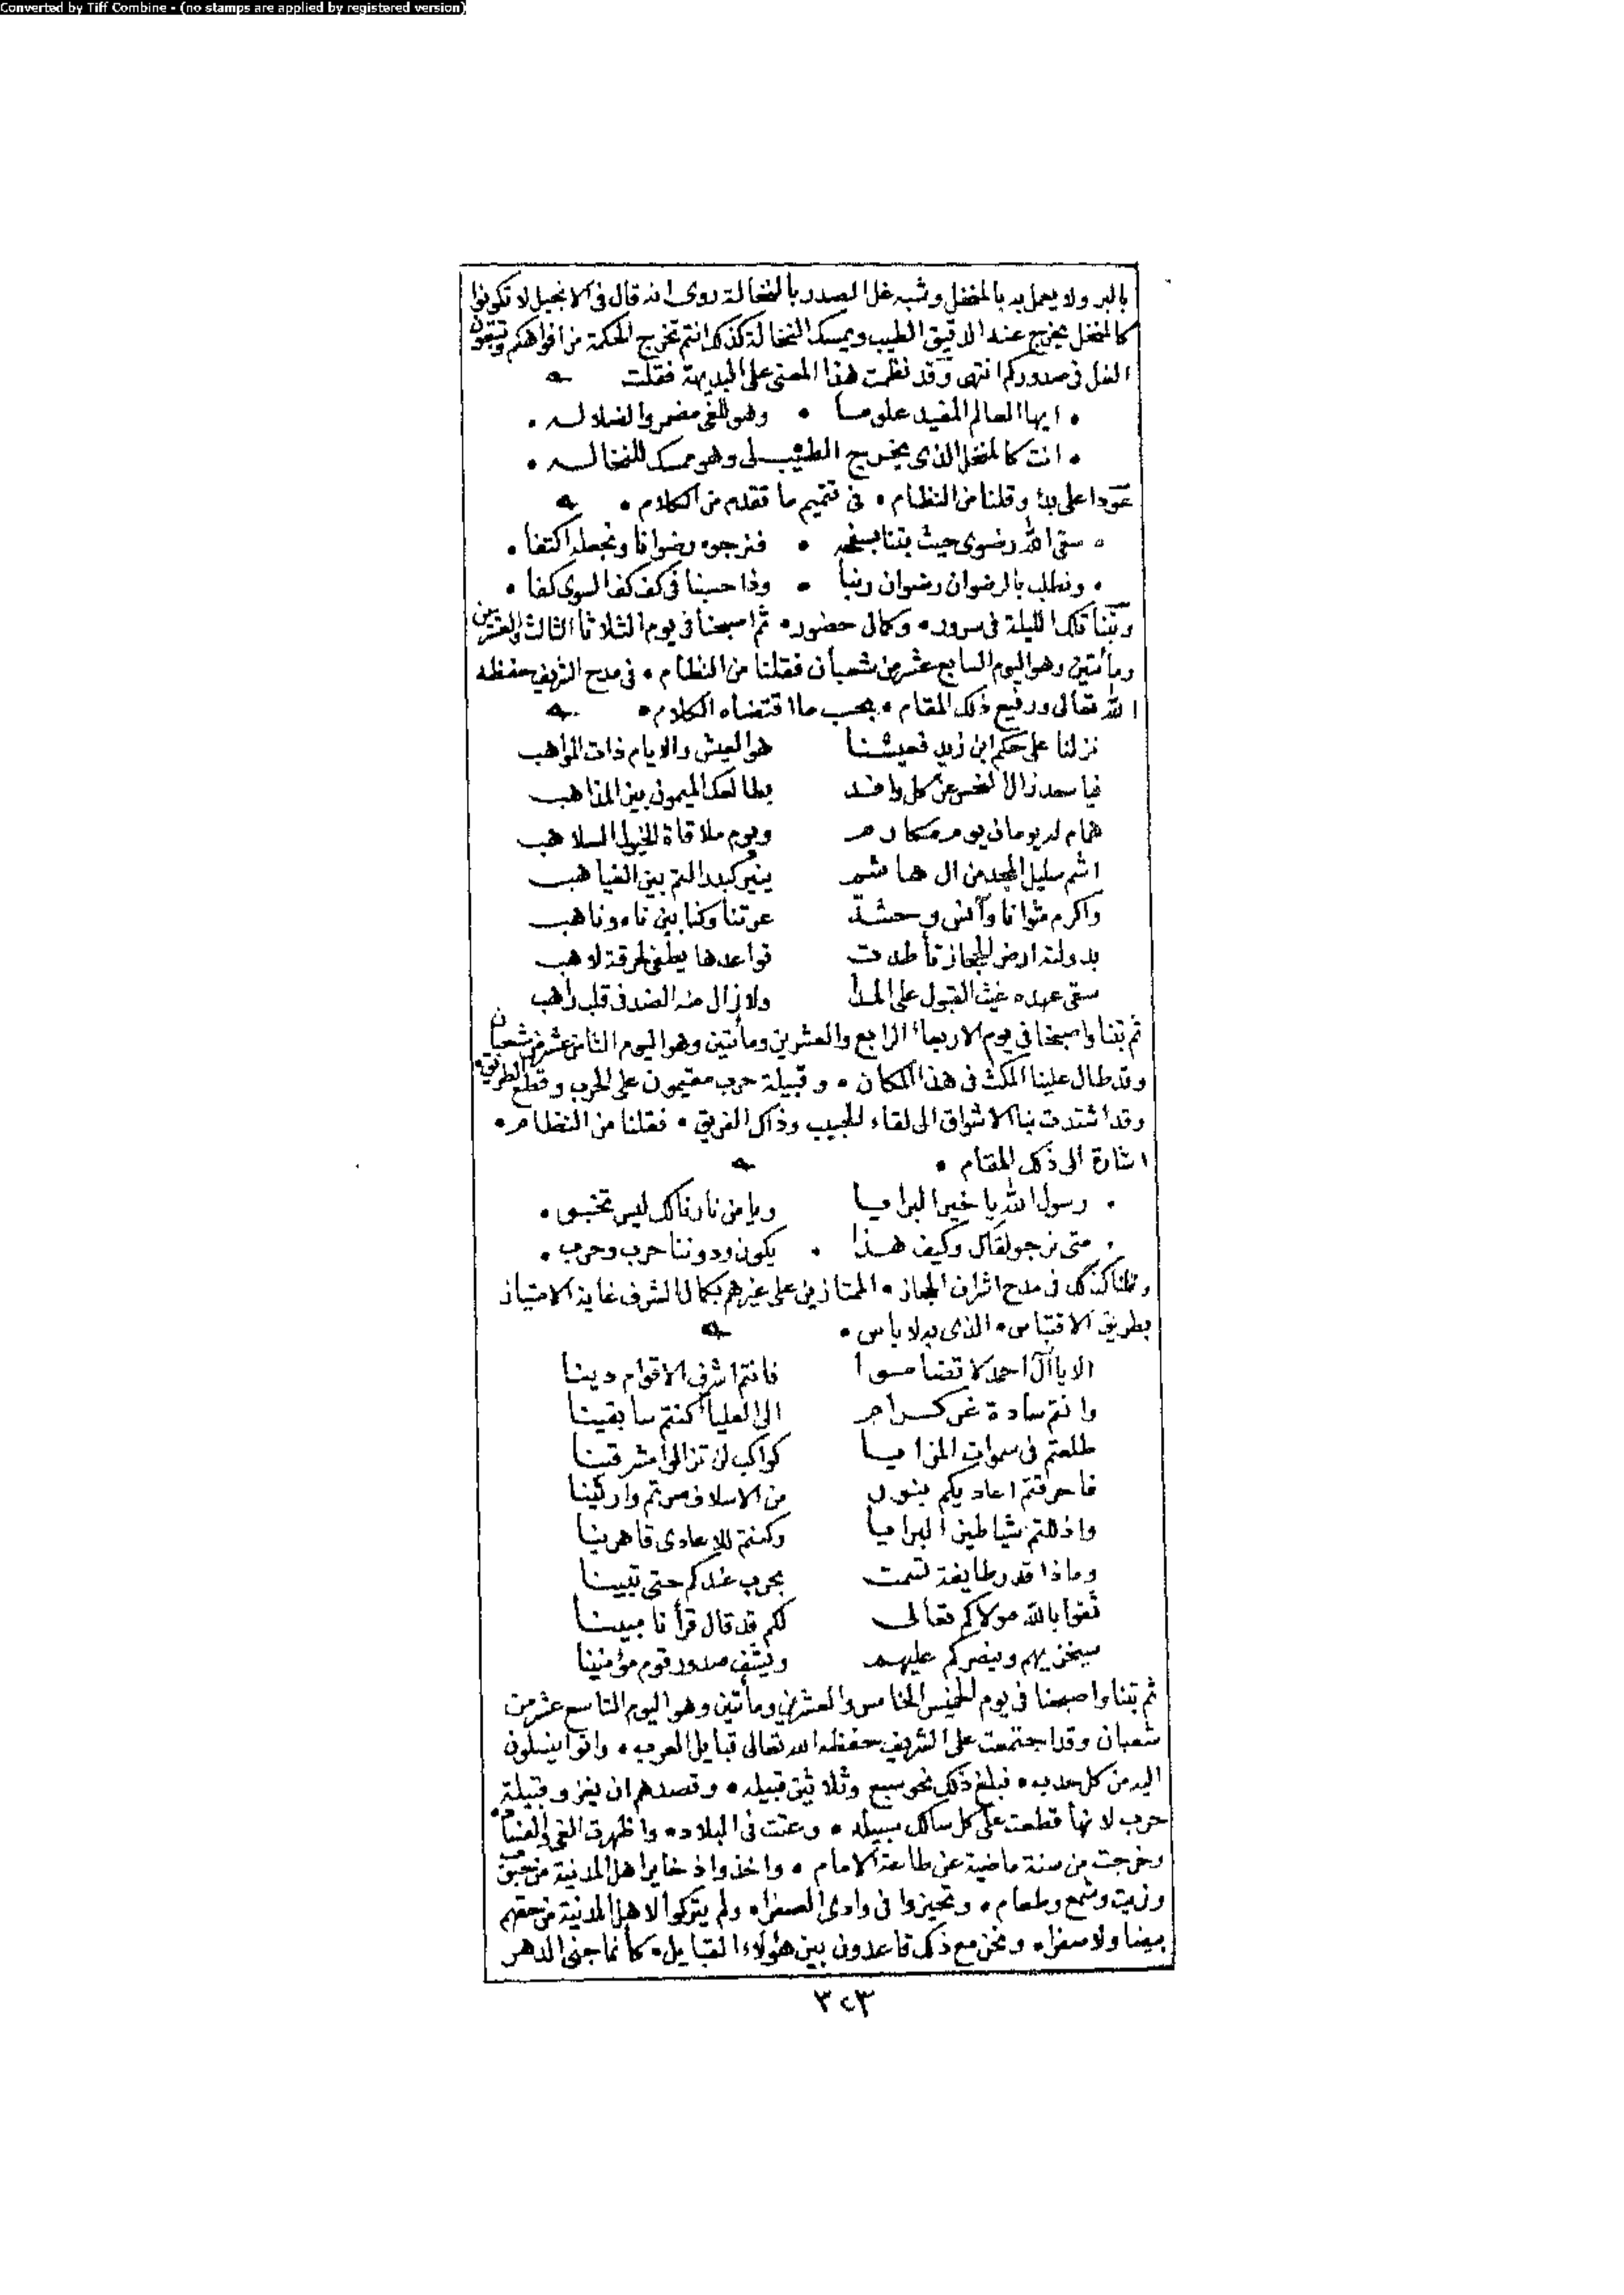 Converted by Tiff Combine - (no stamps are applied by registered version)
بالبر ولا يعمل به بالمنخل وشبه غل الصدر بالنخالة روى انه قال فى الانجيل لا تكونوا
كالمنخل يخرج عنه الدقيق الطيب ويمسك النخالة كذلك انتم تخرج الحكمة من افواهكم وتبقون
الغل فى صدوركم انتهى وقد نظمت هذا المعنى على البديهة فقلت
• ايها العالم المفيد علوما • وهو للغى مضمر والضلاله •
• انت كالمنخل الذى يخرج الطيب لى وهو ممسك للنخاله •
عودا على بدء وقلنا من النظام • فى تتميم ما تقدم من الكلام •
• سقى الله رضوى حيث بتنا بسفحه • فنرجوه رضوانا ونجعله اكتفا •
• ونطلب بالرضوان رضوان ربنا • وذا حسبنا فى كف كف السوى كفا •
وبتنا تلك الليلة فى سرور • وكمال حضور • ثم اصبحنا فى يوم الثلاثا الثالث والعشرين
ومأتين وهو اليوم السابع عشر من شعبان فقلنا من النظام • فى مدح الشريف حفظه
الله تعالى ورفيع ذلك المقام • بحسب ما اقتضاه الكلام •
نزلنا على حكم ابن زيد فعيشنا هو العيش والايام ذات المواهب
فيا سعد زال النحس عن كل وافد بطالعك الميمون بين المذاهب
همام له يومان يوم مكارم ويوم ملاقاة الخيول السلاهب
اشم سليل المجد من ال هاشم ينير كبدر التم بين الغياهب
واكرم مثوانا وآنس وحشة عرتنا وكنا بين ناء وناهب
بدولته ارض الحجاز تأطدت قواعدها يطفى لحرقة لاهب
سقى عهده غيث القبول على المدا ولا زال منه الضد فى قلب راهب
ثم بتنا واصبحنا فى يوم الاربعاء الرابع والعشرين ومأتين وهو اليوم الثامن عشر من شعبان
وقد طال علينا المكث فى هذا المكان • وقبيلة حرب مقيمون على الحرب وقطع الطريق •
وقد اشتدت بنا الاشواق الى لقاء الحبيب وذاك الفريق • فقلنا من النظام •
اشارة الى ذلك المقام •
• رسول الله يا خير البرايا ويا من نار ناك ليس تخبو •
• متى نرجو لقاك وكيف هذا • يكون ودوننا حرب وحرب •
وقلنا كذلك فى مدح اشراف الحجاز • الممتازين على غيرهم بكمال الشرف غاية الامتياز
بطريق الاقتباس • الذى به لا باس •
الا يا آل احمد لا تضاموا فانتم اشرف الاقوام دينا
وانتم سادة غر كرام الى العلياء كنتم سابقينا
طلعتم فى سموات المزايا كواكب لن تزالوا مشرقينا
فاحرقتم اعاديكم بنور من الاسلاف صرتم وارثينا
واذللتم شياطين البرايا وكنتم للاعادى قاهرينا
وماذا قدر طايفة تسمت بحرب عندكم حتى تبينا
ثقوا بالله مولاكم تعالى لكم قد قال قرأنا مبينا
سيخزيهم وينصركم عليهم ويشف صدور قوم مؤمنينا
ثم بتنا واصبحنا فى يوم الخميس الخامس والعشرين ومأتين وهو اليوم التاسع عشر من
شعبان وقد اجتمعت على الشريف حفظه الله تعالى قبايل العرب • واتوا ينسلون
اليه من كل حدب • فبلغ ذلك نحو سبع وثلاثين قبيله • وقصدهم ان يغزو قبيلة
حرب لانها قطعت على كل سالك سبيله • وعثت فى البلاد • واظهرت الغى والفساد •
وخرجت من سنة ماضية عن طاعة الامام • واخذوا ذخاير اهل المدينة من حب
وزيت وشمع وطعام • وتحيزوا فى وادى الصفرا • ولم يتركوا لاهل المدينة من حقهم
بيضا ولا صفرا • ونحن مع ذلك قاعدون بين هؤلاء القبايل • كأنما جنى الدهر
٣٢٣